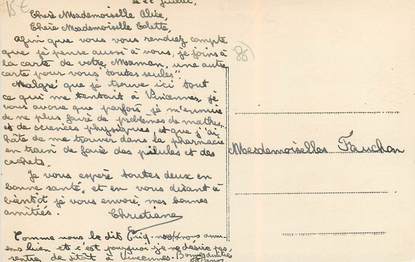 15€
le 22 juillet.
Chère Mademoiselle Alice,
Chère Mademoiselle Odette,
Afin que vous vous rendiez compte
que je pense aussi à vous, je joins à
la carte de votre Maman, une autre
carte pour vous toutes seules.
Malgré que je trouve ici tout
ce qui me tentait à Vincennes, je
vous avoue que parfois je m'ennuie
de ne plus faire de problèmes de maths,
et de sciences physiques et que j'ai
hâte de me trouver dans la pharmacie
en train de faire des pilules et des
cachets.
Je vous espère toutes deux en
bonne santé, et en vous disant à
bientôt je vous envoie mes bonnes
amitiés.
Christiane
Comme nous le dit
bien, et c'est pourquoi je ne désire pas
rentrer de suite à Vincennes.
Mesdemoiselles Fauchon